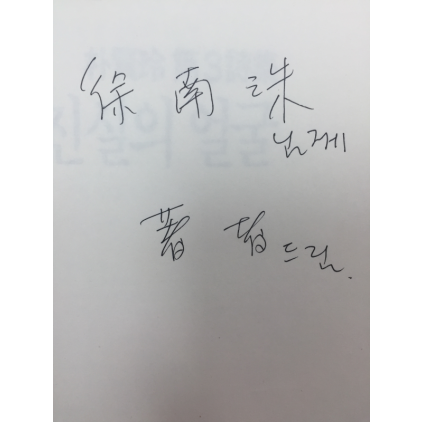 徐 南 洙
님게
著 者 드림.